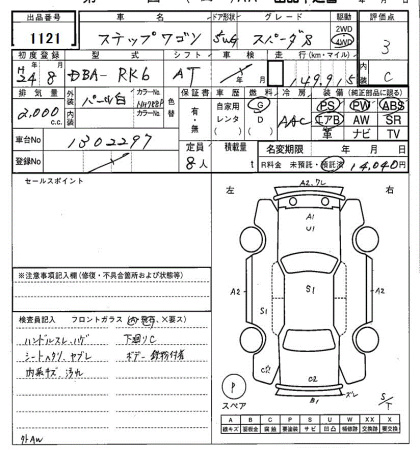 出品番号 車名 ドア形状 グレード 駆動 評価点
1121 ステップワゴン 5WG スパーダS 2WD 4WD 3
初度登録 型式 シフト 車検 走行(km・マイル) 内装
H24 8 DBA-RK6 AT 149,915 C
排気量 外装 カラーNo 色替 保証書 車歴 燃料 冷房 装備(純正部品に限る)
2,000 c.c. パール白 NH788P 有・無 自家用 レンタ G D AAC PS PW ABS
内装 カラーNo エアB AW SR
革 ナビ TV
車台No 1302297
定員 8人 積載量 t 名変期限 年 月 日
登録No R料金 未預託・預託済 14,040円
セールスポイント
左 右
A2,ワレ
A1
U1
A2 S1 S1 A2
C2
B1
スペア P
※注意事項記入欄(修復・不具合箇所および状態等)
検査員記入 フロントガラス(A,飛石、×要ス)
ハンドルスレ,ハゲ 下廻りC
シートスクリ,ヤブレ ボデー鉄粉付着
内張キズ,汚れ
外AW
S/T
A B C P S U W XX X
線キズ 要板金 腐蝕 要塗装 サビ 凹凸 補修跡 交換跡 要交換